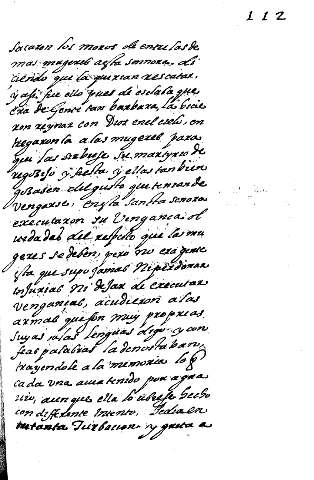 112
sacaron los moros de entre las de
mas mugeres a esta señora, di
ciendo que la querian rescatar,
y assi fue ello pues de esclaba que
era de gente tan barbara, la hicie
ron reynar con Dios en el cielo, en
tregaronla a las mugeres para
que las sirbiese su martyrio de
regosijo y fiesta, y ellas tambien
gozasen del gusto que tenian de
vengarse, en esta santa señora
executaron su venganca ol
uidadas del respeto que las mu
geres se deben, pero no era gente
esta que supo jamas ni perdonar
injurias ni dejar de executar
venganças, acudieron a las
armas que son muy proprias
suyas a las lenguas digo y con
feas palabras la denostaban,
trayendole a la memoria lo q
cada una auia tenido por agra
uio, aunque ella lo ubiese hecho
con differente intento,
tanta turbacion, y grita a